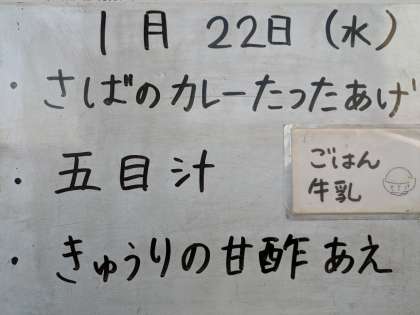 1月 22日（水）
・さばのカレーたったあげ
・五目汁
ごはん
牛乳
・きゅうりの甘酢あえ